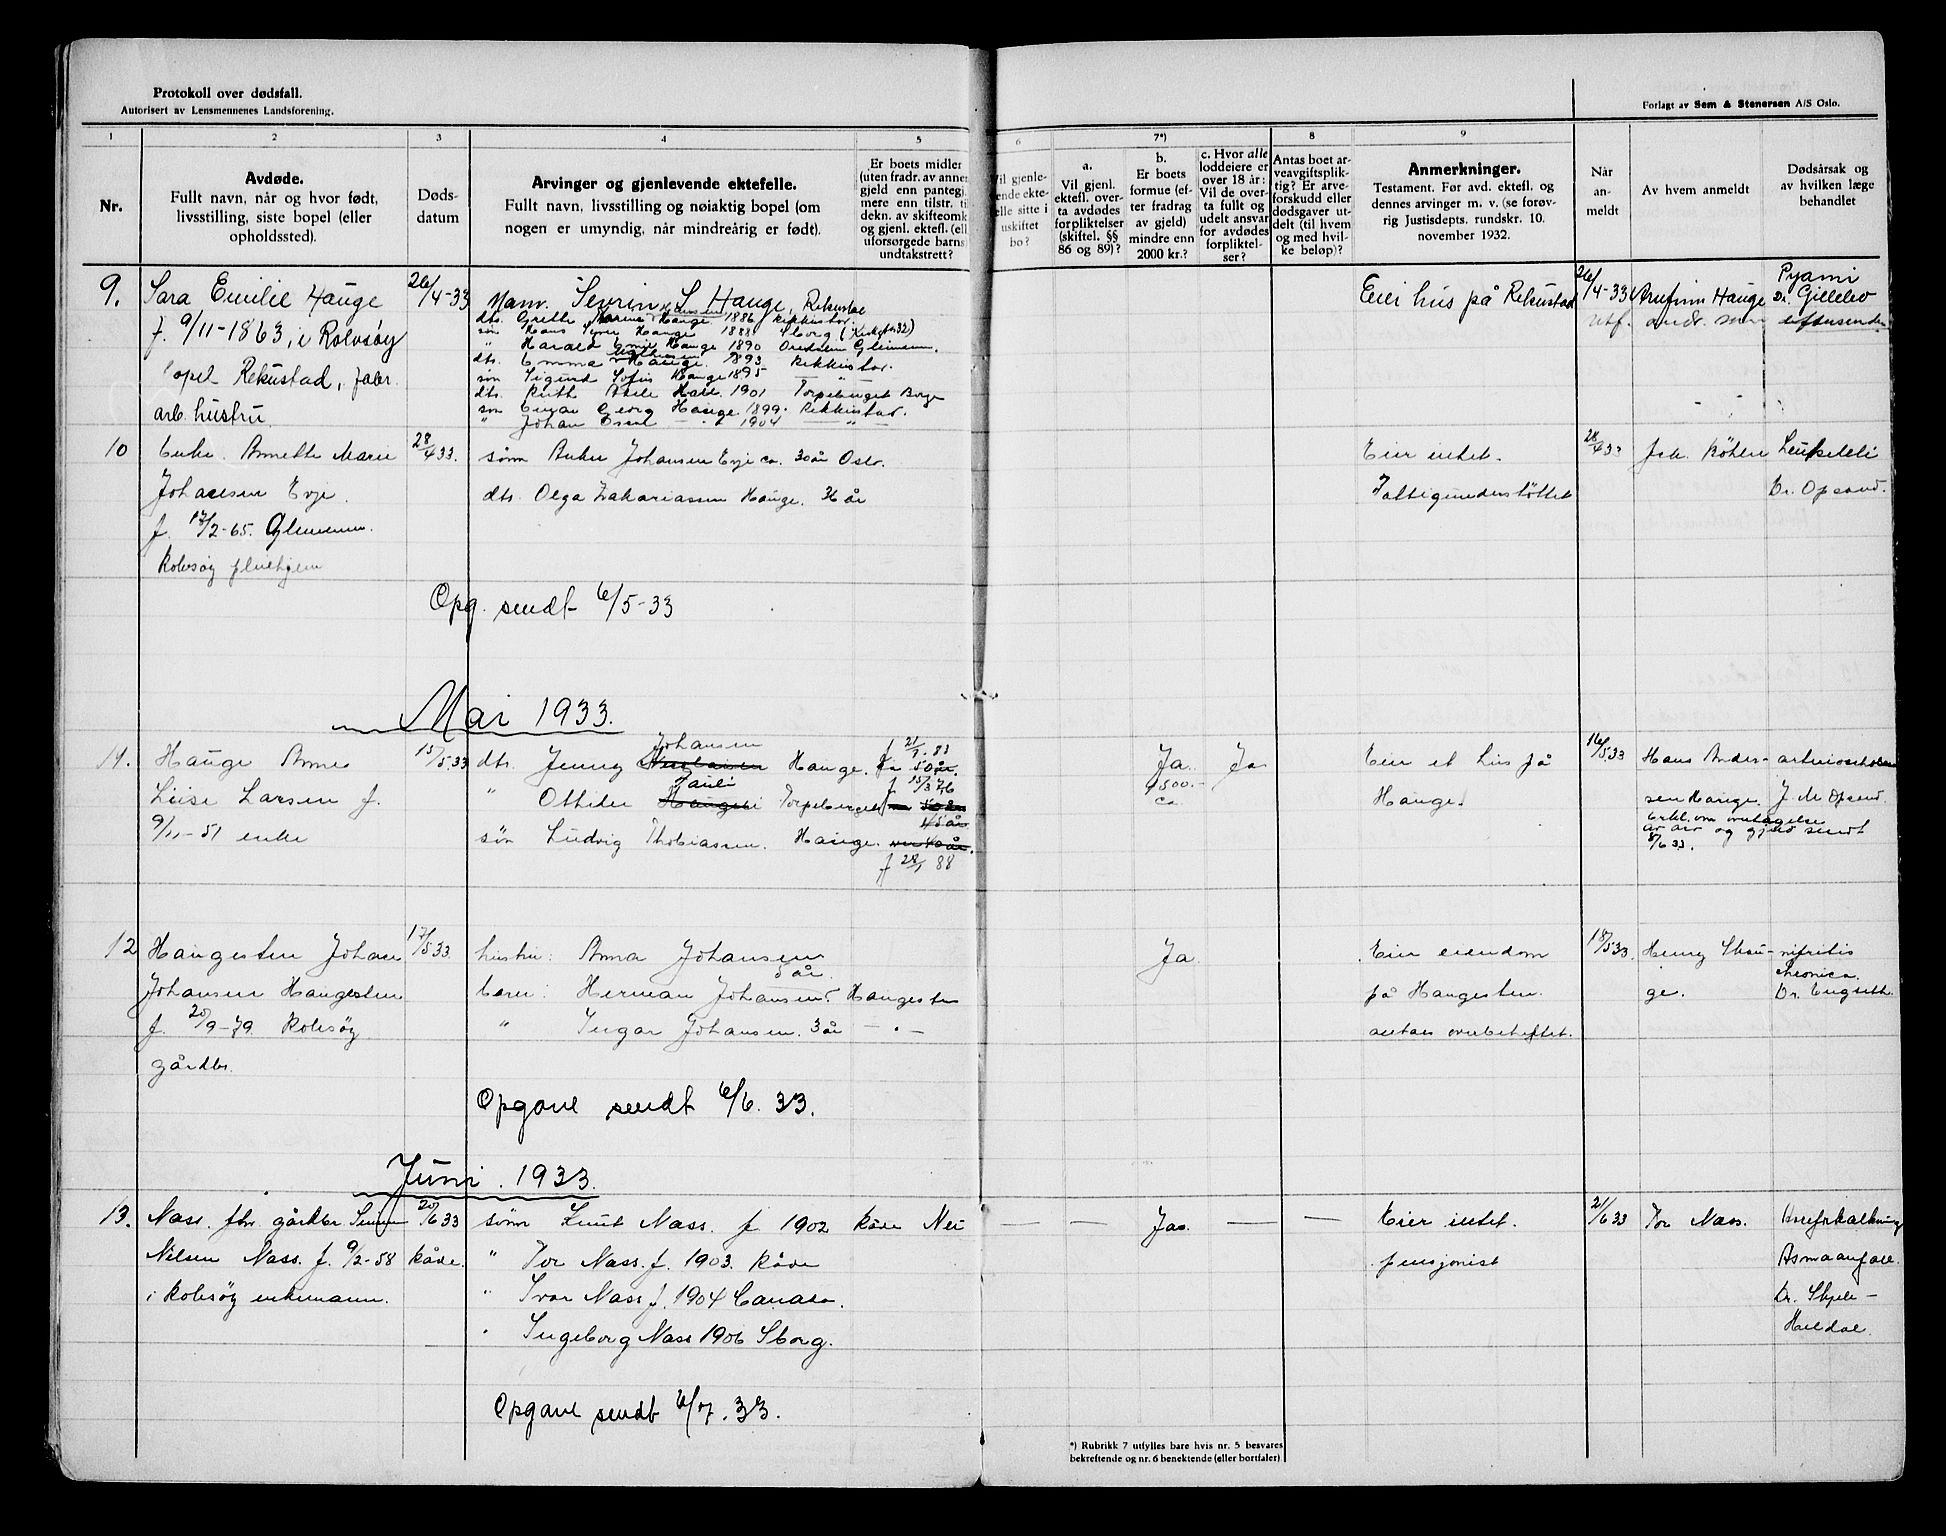 Protokoll over dødsfall.
Autorisert av Lensmennenes Landsforening.
Forlagt av Sem & Stenersen A/S Oslo.
1 2 3 4 5 6 7*) 8 9
Nr.
Avdøde.
Fullt navn, når og hvor født,
livsstilling, siste bopel (eller
opholdssted).
Døds-
datum
Arvinger og gjenlevende ektefelle.
Fullt navn, livsstilling og nøiaktig bopel (om
nogen er umyndig, når mindreårig er født).
Er boets midler
(uten fradr. av annen
gjeld enn pantegj.
mere enn tilstr. ti
dekn. av skifteomk
og gjenl. ektef. (ell
uforsorgede barns)
undtakstrett?
Vil gjenle-
ende ekte-
elle sitte i
uskiftet
bo?
a.
Vil gjenl.
ektefl. over-
ta avdødes
forpliktelser
(skiftel. §§
86 og 89)?
b.
Er boets
formue (ef-
ter fradrag
av gjeld)
mindre enn
2000 kr.?
c. Hvor alle
loddeiere er
over 18 år:
Vil de over-
ta fullt og
udelt ansvar
for avdødes
forpliktel-
ser?
Antas boet ar-
veavgiftsplik-
tig? Er arve-
forskudd eller
dødsgaver ut-
delt (til hvem
og med hvil-
ke beløp)?
Anmerkninger.
Testament. Før avd. ektefl. og
dennes arvinger m. v. (se forøv-
rig Justisdepts. rundskr. 10.
november 1932.
Når
an-
meldt
Av hvem anmeldt
Dødsårsak og
av hvilken læge
behandlet
9. Sara Emilie Hauge 26/4-33 Mann. Severin L Hauge, Rekustad Eier hus på Rekustad 26/4-33 Arnfinn Hauge Pyami
Dr. Gillebo
f. 9/11-1863, i Rolvsøy
dts. Grethe Marie Hauge 1886 Rekkustad.
søn Hans Hauge 1888 Sborg
" Harald Emil Hauge 1890 Glemmen.
dts. Emma Hauge. 1893. Rekkustad.
bopel Rekustad, fabr.
søn Sigurd Sofus Hauge 1895 — " —
dts. Ruth Hall. 1901 Torpeberget Borge
arb. hustru.
søn Georg Hauge 1899. Rekkustad.
" Johan 1904 — " —
10 Enke. Annette Marie 28/4 33. sønn Anker Johansen Evje ca. 30 år Oslo. Eier intet. 28/4 33 Joh. Køhler
Johansen Evje. dts. Olga Zakariassen Hauge. 36 år Fattigunderstøttet Dr. Opsand.
f. 17/2-65. Glemmen.
Rolvsøy pleiehjem
Opg. sendt 6/5-33
Mai 1933.
11. Hauge Anne 15/5.33 dts. Jenny Johansen Hauge. f 21/9. 83 Ja Ja Eier et hus på 16/5.33 Hans Ander-
Lise Larsen f. " Ottilie Pauli Torpeberget f 15/3 76 1500.- ca Hauge. sen Hauge. J. M Opsand
9/11-51 enke søn Ludvig Thobiassen. Hauge. f 28/1 88
Erkl. om overtagelse
av arv og gjeld sendt
8/6 33.
12 Haugesten Johan 17/5 33. hustru: Anna Johansen Ja. Eier eiendom 18/5 33. Henry Skau- nifritis
cronica.
Johansen Haugesten barn: Herman Johansen 5 år. Haugesten på Haugesten. ge. Dr. Engseth.
f. 20/9-79. Rolvsøy " Ingar Johansen. 3 år — " — antas overbeheftet.
gårdbr.
Opgave sendt 6/6. 33.
Juni. 1933.
13. Næss. fhv. gårdbr 20/6 33 sønn Knut Næss. f 1902 Råde Nei — — Ja. — — Eier intet. 21/6 33 Tor Næss. Areforkalkning
Nilsen Næss. f. 9/2-58 Råde. " Tor Næss. f. 1903. Råde pensjonist Asmaanfall.
i Rolvsøy enkemann. " Ivar Næss f. 1904 Canada. Dr. Stpele-
" Ingeborg Næss 1906 Sborg. Heldal
Opgave sendt 6/7. 33.
*) Rubrikk 7 utfylles bare hvis nr. 5 besvares
bekreftende og nr. 6 benektende (eller bortfaler)